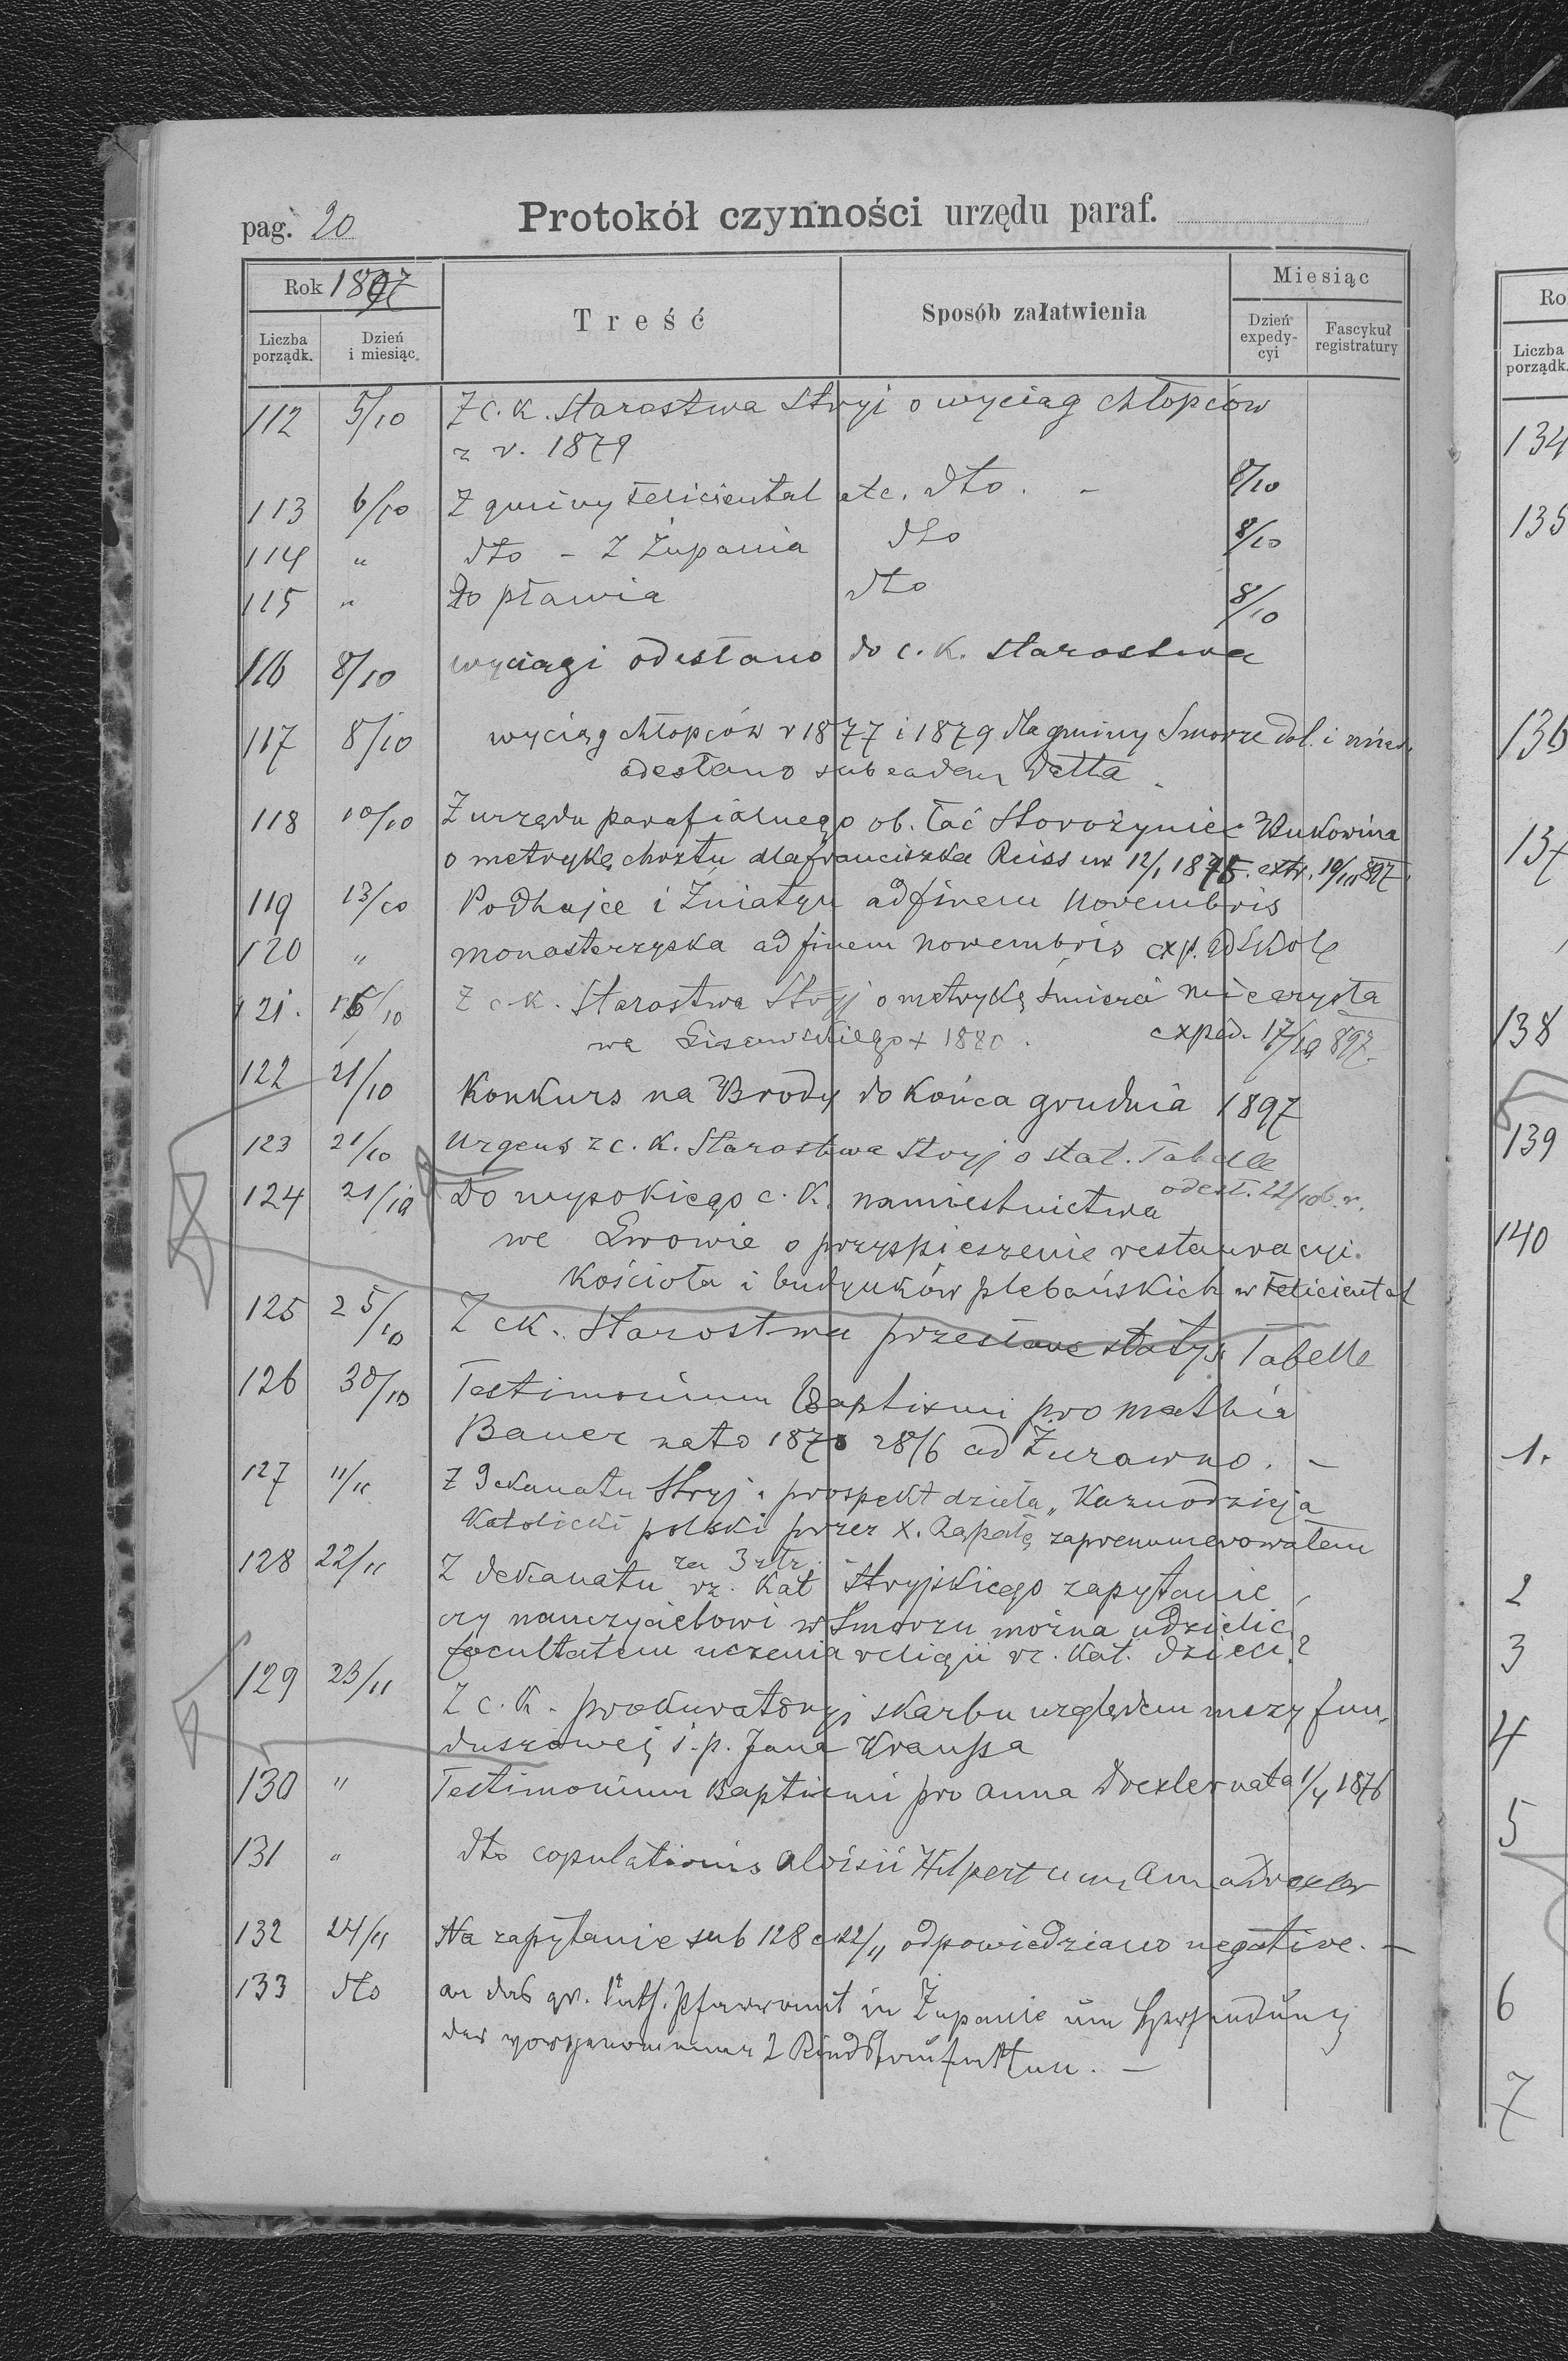 pag. 20 Protokół czynności urzędu paraf.
Rok 1897
Treść
Sposób załatwienia
Miesiąc
Liczba porządk.
Dzień i miesiąc
Dzień expedycyi
Fascykuł registratury
112 5/10 Z c. k. Starostwa Stryj o wyciąg chłopców
z r. 1879
113 6/10 Z gminy Felicienthal etc. dto. - 8/10
114 " dto - Z Żupania dto 8/10
115 " Do pławia dto 8/10
116 8/10 wyciągi odesłano do c. k. starostwa
117 8/10 wyciąg chłopców r 1877 i 1879 dla gminy Smorze dol. i
odesłano sub eadem
118 10/10 Z urzędu parafialnego ob. łać Storożyniec Bukowina
o metrykę chrztu dla franciszka Reiss ur 12/1 1875. extr. 10/10 897.
119 13/10 Podhajce i Żniatyn ad finem Novembris
120 " Monasterzyska ad finem novembris exp. ad Skole
121. 16/10 Z c k. Starostwa Stryj o metrykę śmierci Mieczysła
wa Lisowskiego + 1880. exped. 17/10 897.
122 21/10 Konkurs na Brody do końca grudnia 1897
123 21/10 Urgens z c. k. Starostwa Stryj o stat. Tabelle
odesł. 22/10 b. r.
124 21/10 Do wysokiego c. k. namiestnictwa
we Lwowie o przyspieszenie restauracyi
Kościoła i budynków plebańskich w Felicienthal
125 25/10 Z ck. Starostwa przesłane statys. Tabelle
126 30/10 Testimonium Baptismi pro Mathia
Bauer nato 1870 28/6 ad Żurawno. -
127 11/11 Z Dekanatu Stryj: prospekt dzieła „Kaznodzieja
Katolicki polski przez X. zaprenumerowałem
za 3 złr.
128 22/11 Z dekanatu rz. Kat Stryjskiego zapytanie,
czy nauczycielowi w Smorzu można udzielić
facultatem uczenia religii rz. Kat. dzieci?
129 23/11 Z c. k. prokuratoryi skarbu względem mszy fun-
duszowej ś. p. Jana Kraussa
130 " Testimonium Baptismi pro Anna Drexler nata 1/4 1876
131 " dto copulationis Aloisii Hilpert cum Anna Drexler
132 24/11 Na zapytanie sub 128 e 22/11 odpowiedziano negative. -
133 dto an das gr. kath. Pfarramt in Żupanie um
der vorgenommenen 2 Kindstaufakten. -
Ro
Liczba porządk.
134
135
136
137
138
139
140
1.
2
3
4
5
6
7